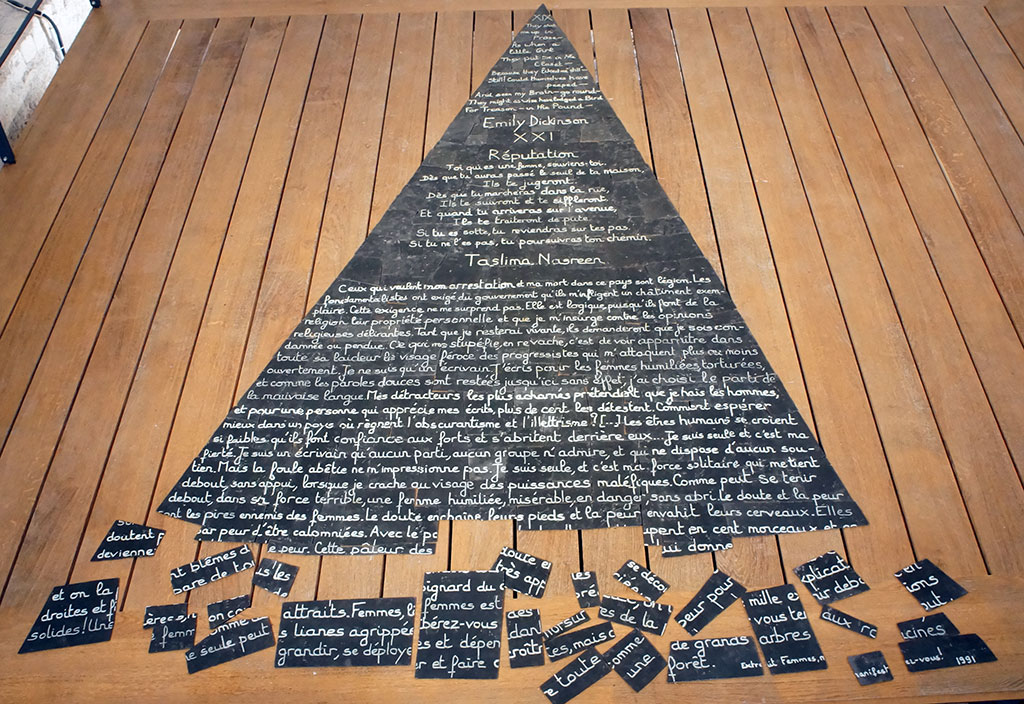 XIX
They shut
me up in
Prose—
As when a
little Girl
They put me in the
Closet—
Because they liked me "still"—
Still! Could themself have
peeped—
And seen my Brain—go round—
They might as wise have lodged a Bird
For Treason—in the Pound—
Emily Dickinson
XXI
Réputation
Toi qui es une femme, souviens-toi.
Dès que tu auras passé le seuil de ta maison,
Ils te jugeront.
Dès que tu marcheras dans la rue,
Ils te suivront et te siffleront.
Et quand tu arriveras sur l'avenue,
Ils te traiteront de pute.
Si tu es sotte, tu reviendras sur tes pas.
Si tu ne l'es pas, tu poursuivras ton chemin.
Taslima Nasreen
Ceux qui veulent mon arrestation et ma mort dans ce pays sont légion. Les
fondamentalistes ont exigé du gouvernement qu'ils m'infligent un châtiment exem-
plaire. Cette exigence ne me surprend pas. Elle est logique, puisqu'ils font de la
religion leur propriété personnelle et que je m'insurge contre les opinions
religieuses délirantes. Tant que je resterai vivante, ils demanderont que je sois con-
damnée ou pendue. Ce qui me stupéfie, en revache, c'est de voir apparaître dans
toute sa laideur le visage féroce des progressistes qui m'attaquent plus ou moins
ouvertement. Je ne suis qu'un écrivain. J'écris pour les femmes humiliées, torturées,
et comme les paroles douces sont restées jusqu'ici sans effet, j'ai choisi le parti de
la mauvaise langue. Mes détracteurs les plus acharnés prétendent que je hais les hommes,
et pour une personne qui apprécie mes écrits, plus de cent les détestent. Comment espérer
mieux dans un pays où règnent l'obscurantisme et l'illettrisme? [...] Les êtres humains se croient
si faibles qu'ils font confiance aux forts et s'abritent derrière eux... Je suis seule et c'est ma
fierté. Je suis un écrivain qu'aucun parti, aucun groupe n'admire, et qui ne dispose d'aucun sou-
tien. Mais la foule abêtie ne m'impressionne pas. Je suis seule, et c'est ma force solitaire qui me tient
debout, sans appui, lorsque je crache au visage des puissances maléfiques. Comme peut se tenir
debout, dans sa force terrible, une femme humiliée, misérable, en danger, sans abri. Le doute et la peur
sont les pires ennemis des femmes. Le doute enchaîne leurs pieds et la peur envahit leurs cerveaux. Elles
doutent p
devienne
par peur d'être calomniées. Avec le po
e peur. Cette pâleur des
uppent en cent morceaux et
ui donne
et on la
droites et f
solides! Une
nt blêmes d
pare de tou
femm
comme
se seule peut
attraits. Femmes, li
s lianes agrippée
grandir, se déploye
oignard du c
femmes est
bérez-vous
es et dépen
er et faire c
douce e
très app
des
dans
croitr
se déco
es de la
, mais
e toute
omme
une
eur pour
de grands
foret.
mille e
vous ter
arbres
Extrait Femmes, m
plicat
ur debo
aux ra
tons
out
manifest
cines
ez-vous! 1991